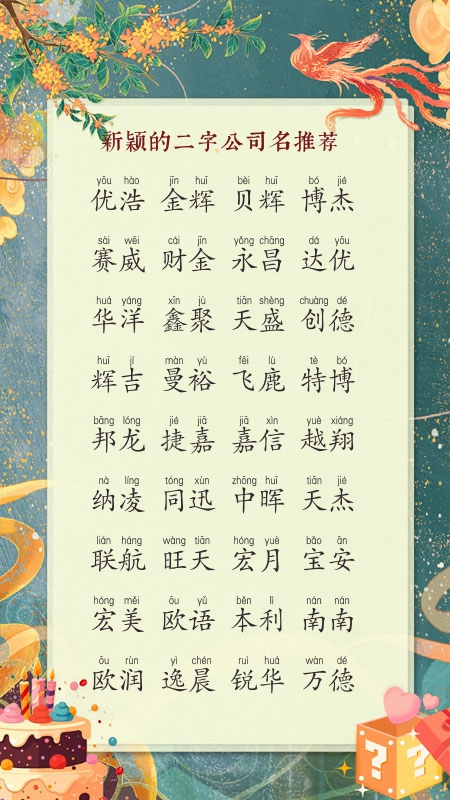 新颖的二字公司名推荐
yōu hào jīn huī bèi huī bó jié
优浩 金辉 贝辉 博杰
sài wēi cái jīn yǒng chāng dá yōu
赛威 财金 永昌 达优
huá yáng xīn jù tiān shèng chuàng dé
华洋 鑫聚 天盛 创德
huī jí màn yù fēi lù tè bó
辉吉 曼裕 飞鹿 特博
bāng lóng jié jiā jiā xìn yuè xiáng
邦龙 捷嘉 嘉信 越翔
nà líng tóng xùn zhōng huī tiān jié
纳凌 同迅 中晖 天杰
lián háng wàng tiān hóng yuè bǎo ān
联航 旺天 宏月 宝安
hóng měi ōu yǔ běn lì nán nán
宏美 欧语 本利 南南
ōu rùn yì chén ruì huá wàn dé
欧润 逸晨 锐华 万德
? ?